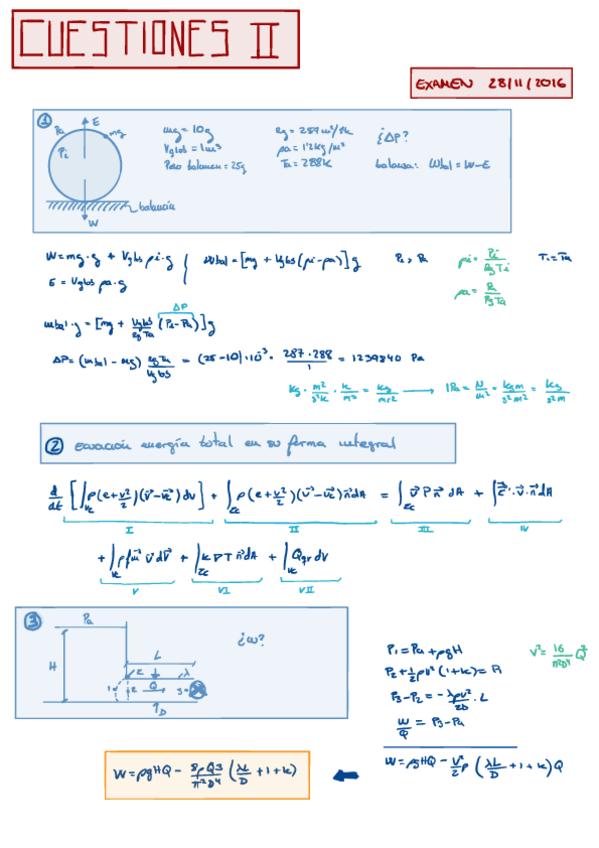 CUESTIONES II
EXAMEN 28/11/2016
1
Pa E mg
Pi
balanza
W
mg = 10g
Vglob = 1m³
Peso balanza = 25g
Rg = 287 m²/s²k
ρa = 1'2 kg/m³
Ta = 288K
¿ΔP?
balanza: Wbal = W-E
W = mg·g + Vglob ρi·g
E = Vglob ρa·g
Wbal = [mg + Vglob (ρi-ρa)] g
Pi > Pa
ρi = Pi / Rg Ti
Ti = Ta
ρa = Pa / Rg Ta
ΔP
mbal·g = [mg + Vglob / Rg Ta (Pi-Pa)] g
ΔP = (mbal - mg) Rg Ta / Vglob = (25-10)·10⁻³ · 287·288 / 1 = 1239840 Pa
kg · m²/s²k · k/m³ = kg/ms² → 1Pa = N/m² = kgm/s²m² = kg/s²m
2 ecuación energía total en su forma integral
d/dt [∫Vc ρ(e+v²/2)(v-vc) dV] + ∫Σc ρ(e+v²/2)(v-vc) n dA = ∫Σc v P n dA + ∫ τ'·v·n dA
I II III IV
+ ∫Vc ρ fm v dV + ∫Σc k ∇T n dA + ∫Vc Qqr dV
V VI VII
3
Pa
¿ω?
L
H
K λ
1 2 Q 3
D
P1 = Pa + ρgH
P2 + 1/2 ρv² (1+k) = P1
P3-P2 = - λρv²/2D · L
W/Q = P3-Pa
v² = 16/π²D⁴ Q²
W = ρgHQ - v²/2 ρ (λL/D + 1 + k) Q
W = ρgHQ - 8ρQ3/π²D⁴ (λL/D + 1 + k)